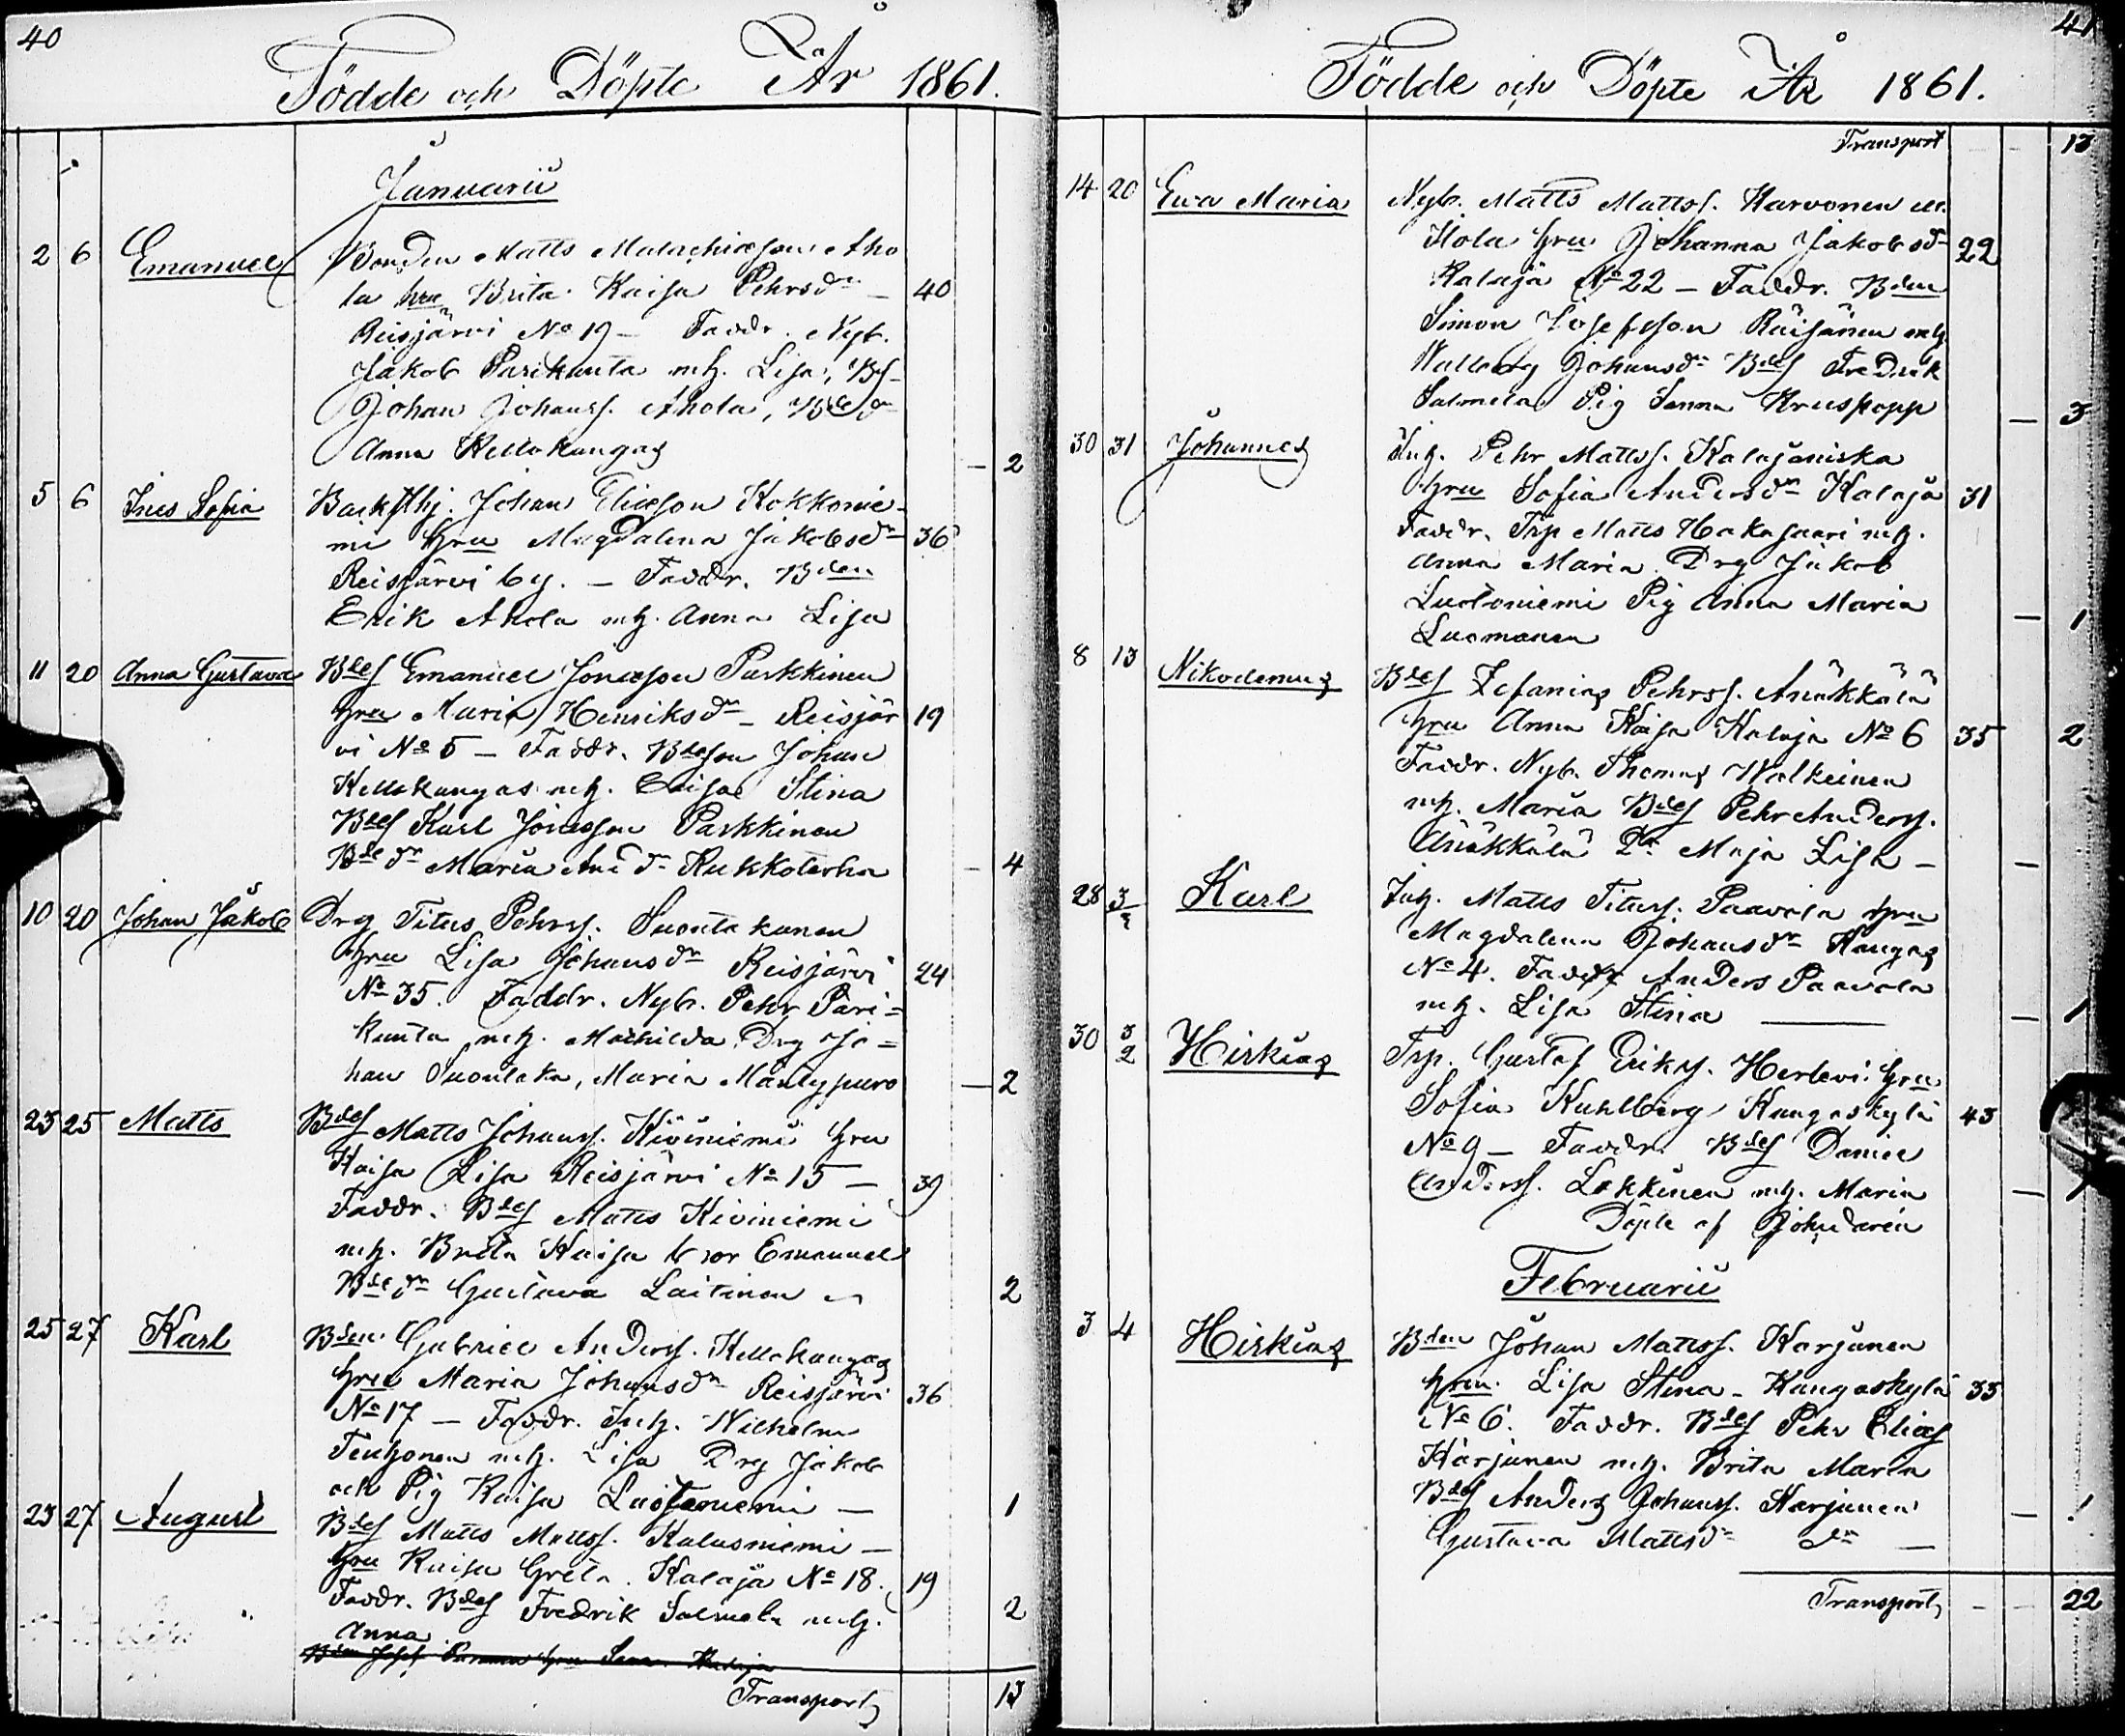 40
Födde och Döpte År 1861.
Januarii
2 6 Emanuel Bonden Matts Malachiæson Aho
la hru Brita Kaisa Pehrsdr — 40
Reisjärvi No 19 — Faddr. Nyb.
Jakob Parikanta mh. Lisa, Bs-
Johan Johanss. Ahola, Bdedr
Anna Kellokangas — 2
5 6 Ines Sofia Backsthj. Johan Eliæson Kokkonie-
mi hru Magdalena Jakobsdr 36
Reisjärvi by. — Faddr. Bden
Erik Ahola mh. Anna Lisa
11 20 Anna Gustava Bdes Emanuel Jonæson Parkkinen
hru Maria Henriksdr — Reisjär 19
vi No 5 — Faddr. Bdeson Johan
Kellokangas mh. Caisa Stina
Bdes Karl Jonæson Parkkinen
Bdedr Maria And.dr Kukkolerha — 4
10 20 Johan Jakob Drg Titus Pehrss. Suontakanen
hru Lisa Johansdr Reisjärvi 24
No 35. Faddr. Nyb. Pehr Pari=
kanta mh. Mathilda Drg Jo=
han Suontaka, Maria Mäntypuro — 2
23 25 Matts Bdes Matts Johanss. Kiviniemi hru
Kaisa Lisa Reisjärvi No 15 — 39
Faddr. Bdes Matts Kiviniemi
mh. Brita Kaisa bror Emanuel
Bdedr Gustava Laitinen 2
25 27 Karl Bden Gabriel Anderss. Kellokangas
hru Maria Johansdr Reisjärvi 36
No 17 — Faddr. Inh. Wilhelm
Teuhonen mh. Lisa Drg Jakob
och Pig Kaisa Luotoniemi — 1
23 27 August Bdes Matts Mattss. Kalusniemi —
hru Kaisa Greta. Kalaja No 18. 19
Faddr. Bdes Fredrik Salmela mh. 2
Anna
Transport 13
41
Födde och Döpte År 1861.
Transport — — 13
14 20 Ewa Maria Nyb. Matts Mattss. Karvonen ell.
Ilola hru Johanna Jakobsdr 22
Kalaja No 22 — Faddr. Bden
Simon Josefsson Räisänen mh
Wallborg Johansdr Bdes Fredrik
Salmela Pig Sanna Kruskopp — 3
30 31 Johannes Inh. Pehr Mattss. Kalajaniska
hru Sofia Andersdr Kalaja 31
Faddr. Trp Matts Hakasaari mh.
Anna Maria. Drg Jakob
Luotoniemi Pig Anna Maria — 1
Luomanen
8 13 Nikodemus Bdes Zefanias Pehrss. Anäkkälä
hru Anna Kaisa Kalaja No 6 35 2
Faddr. Nyb. Thomas Walkeinen
mh. Maria Bdes Pehr Anderss.
Anäkkälä Dr Maja Lisa — —
28 3/2 Karl Inh. Matts Tituss. Paavola hru
Magdalena Johansdr Kangas
No 4. Faddr Anders Paavola
mh. Lisa Stina — 1
30 3/2 Hiskias Trp. Gustaf Erikss. Herlevi hru
Sofia Kuhlberg Kangaskylä 43
No 9 — Faddr. Bdes Daniel
Anderss. Lokkinen mh. Maria — 1
Döpte af
Februarii
3 4 Hiskias Bden Johan Mattss. Karjunen
hru. Lisa Stina — Kangaskylä 33
No 6. Faddr. Bdes Pehr Elias
Karjunen mh. Brita Maria
Bdes Anders Johanss. Karjunen — 1
Gustava Mattsdr dr —
Transport — — 22